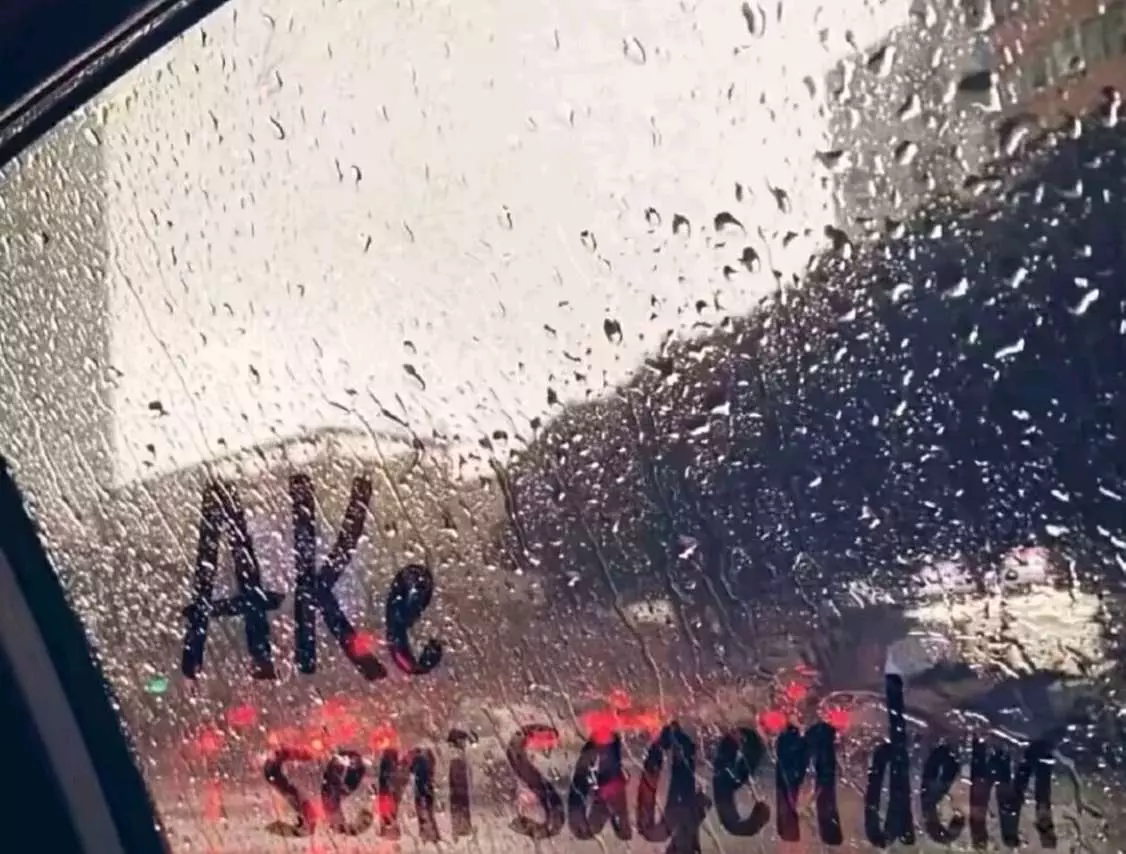 AKe
seni sagendem